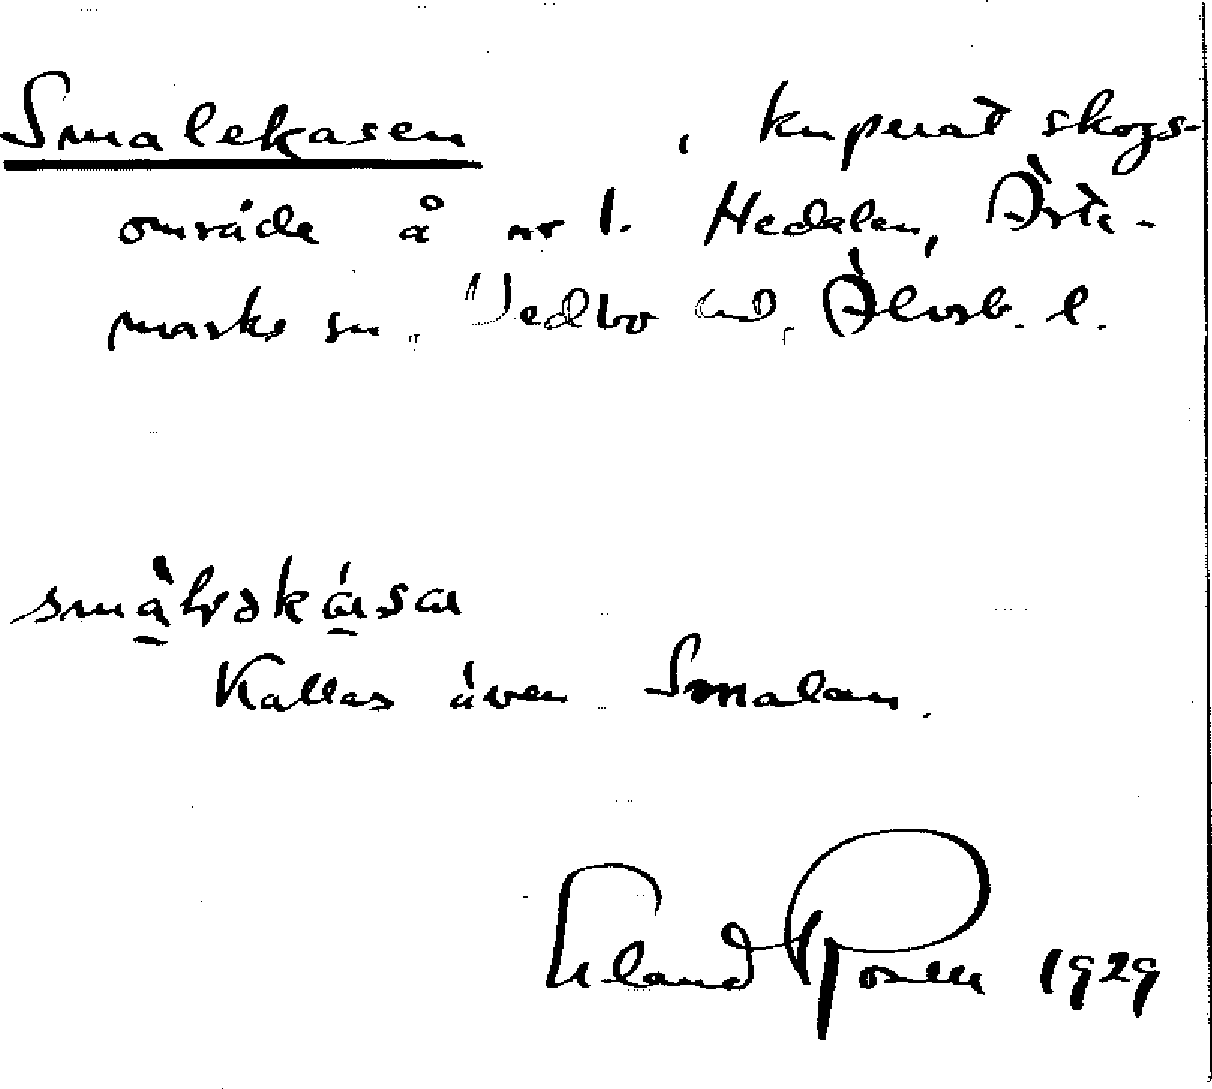 Smalekasen , kuperat skogs-
område å nr 1. Hedalen, Ärte-
marks sn. Vedbo hd, Älvsb. l.
Kallas även Smalan.
Erland Rosell 1929